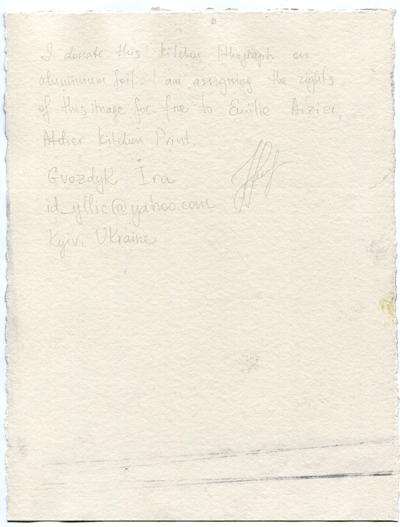 I donate this kitchen lithograph on
aluminium foil. I am assigning the rights
of this image for free to Émilie Aizier,
Atelier Kitchen Print
Gvozdyk Ira
id_yllic@yahoo.com
Kyiv, Ukraine